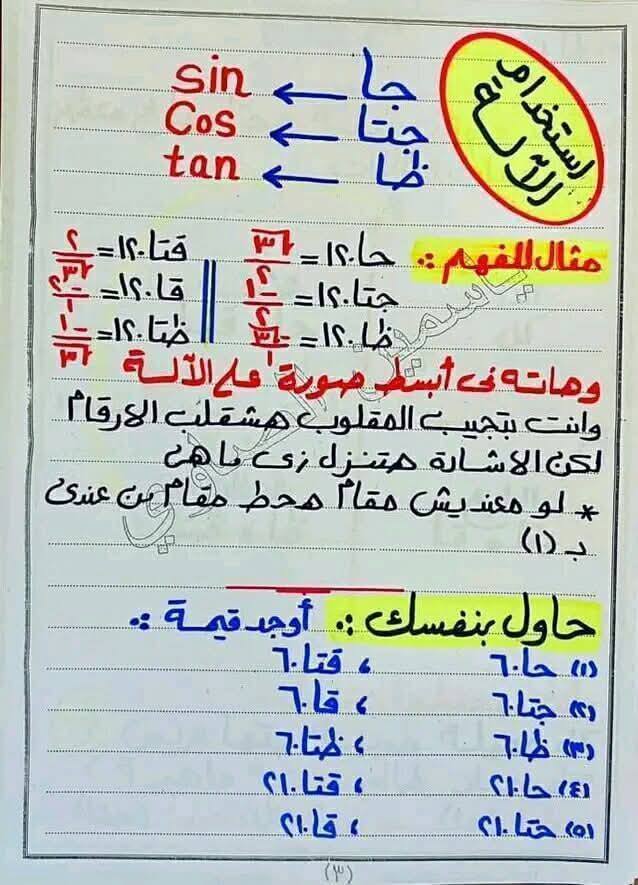 استخدام
الآلة
جا ← sin
جتا ← Cos
ظا ← tan
مثال للفهم :.
حا ١٢٠ = √٣/٢ قتا ١٢٠ = ٢/√٣
جتا ١٢٠ = -١/٢ قا ١٢٠ = -٢/١
ظا ١٢٠ = -√٣/١ ظتا ١٢٠ = -١/√٣
وهاته فى أبسط صورة علي الآلة
وانت بتجيب المقلوب هشقلب الارقام
لكن الاشارة هتنزل زى ما هى
* لو معنديش مقام هحط مقام من عندى
بـ (١)
حاول بنفسك :. أوجد قيمة :.
(١) حا ٦٠ ، قتا ٦٠
(٢) جتا ٦٠ ، قا ٦٠
(٣) ظا ٦٠ ، ظتا ٦٠
(٤) حا ٢١٠ ، قتا ٢١٠
(٥) حتا ٢١٠ ، قا ٢١٠
(٣)
ياسمين الصاوي